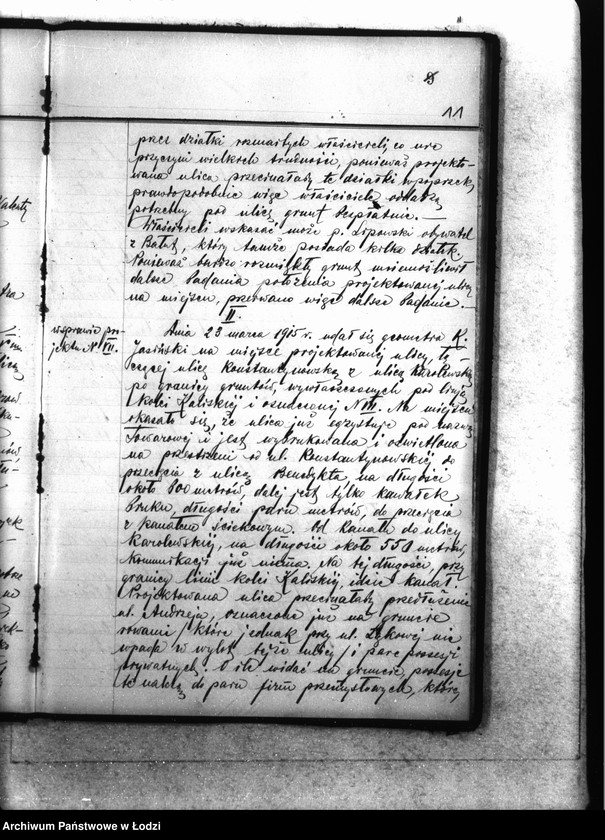 8
11
przez działki rozmaitych właścicieli, co nie
przyczyni wielkich trudności, ponieważ projekto-
wana ulica przecinałaby te działki wpoprzek,
prawdopodobnie więc właściciele oddadzą
potrzebny pod ulicę grunt bezpłatnie. —
Właścicieli wskazać może p. Lipowski obywatel
z Bałut, który tamże posiada kilka działek.
Ponieważ bardzo rozmiękły grunt uniemożliwił
dalsze badania położenia projektowanej ulicy
na miejscu, przerwano więc dalsze badanie. —
II.
w sprawie pro-
jektu N. VII.
Dnia 23 marca 1915 r. udał się geometra K.
Jasiński na miejsce projektowanej ulicy, łą-
czącej ulicę Konstantynowską z ulicą Karolewską
po granicy gruntów, wywłaszczonych pod linję
kolei Kaliskiej i oznaczonej N VII. Na miejscu
okazało się, że ulica już egzystuje pod nazwą
Towarowej i jest wybrukowana i oświetlona
na przestrzeni od ul. Konstantynowskiej do
przecięcia z ulicą Benedykta, na długości
około 800 metrów, dalej jest tylko kawałek
bruku, długości paru metrów, do przecięcia
z kanałem ściekowym. Od kanału do ulicy
Karolewskiej, na długości około 550 metrów,
komunikacji już niema. Na tej długości, przy
granicy linii kolei Kaliskiej, idzie kanał.
Projektowana ulica przecinałaby przedłużenie
ul. Andrzeja, oznaczone już na gruncie
rowami / które jednak przy ul. Łąkowej nie
wpada w wylot tejże ulicy / i parę posesji
prywatnych. O ile widać na gruncie, posesje
te należą do paru firm przemysłowych, które
Archiwum Państwowe w Łodzi